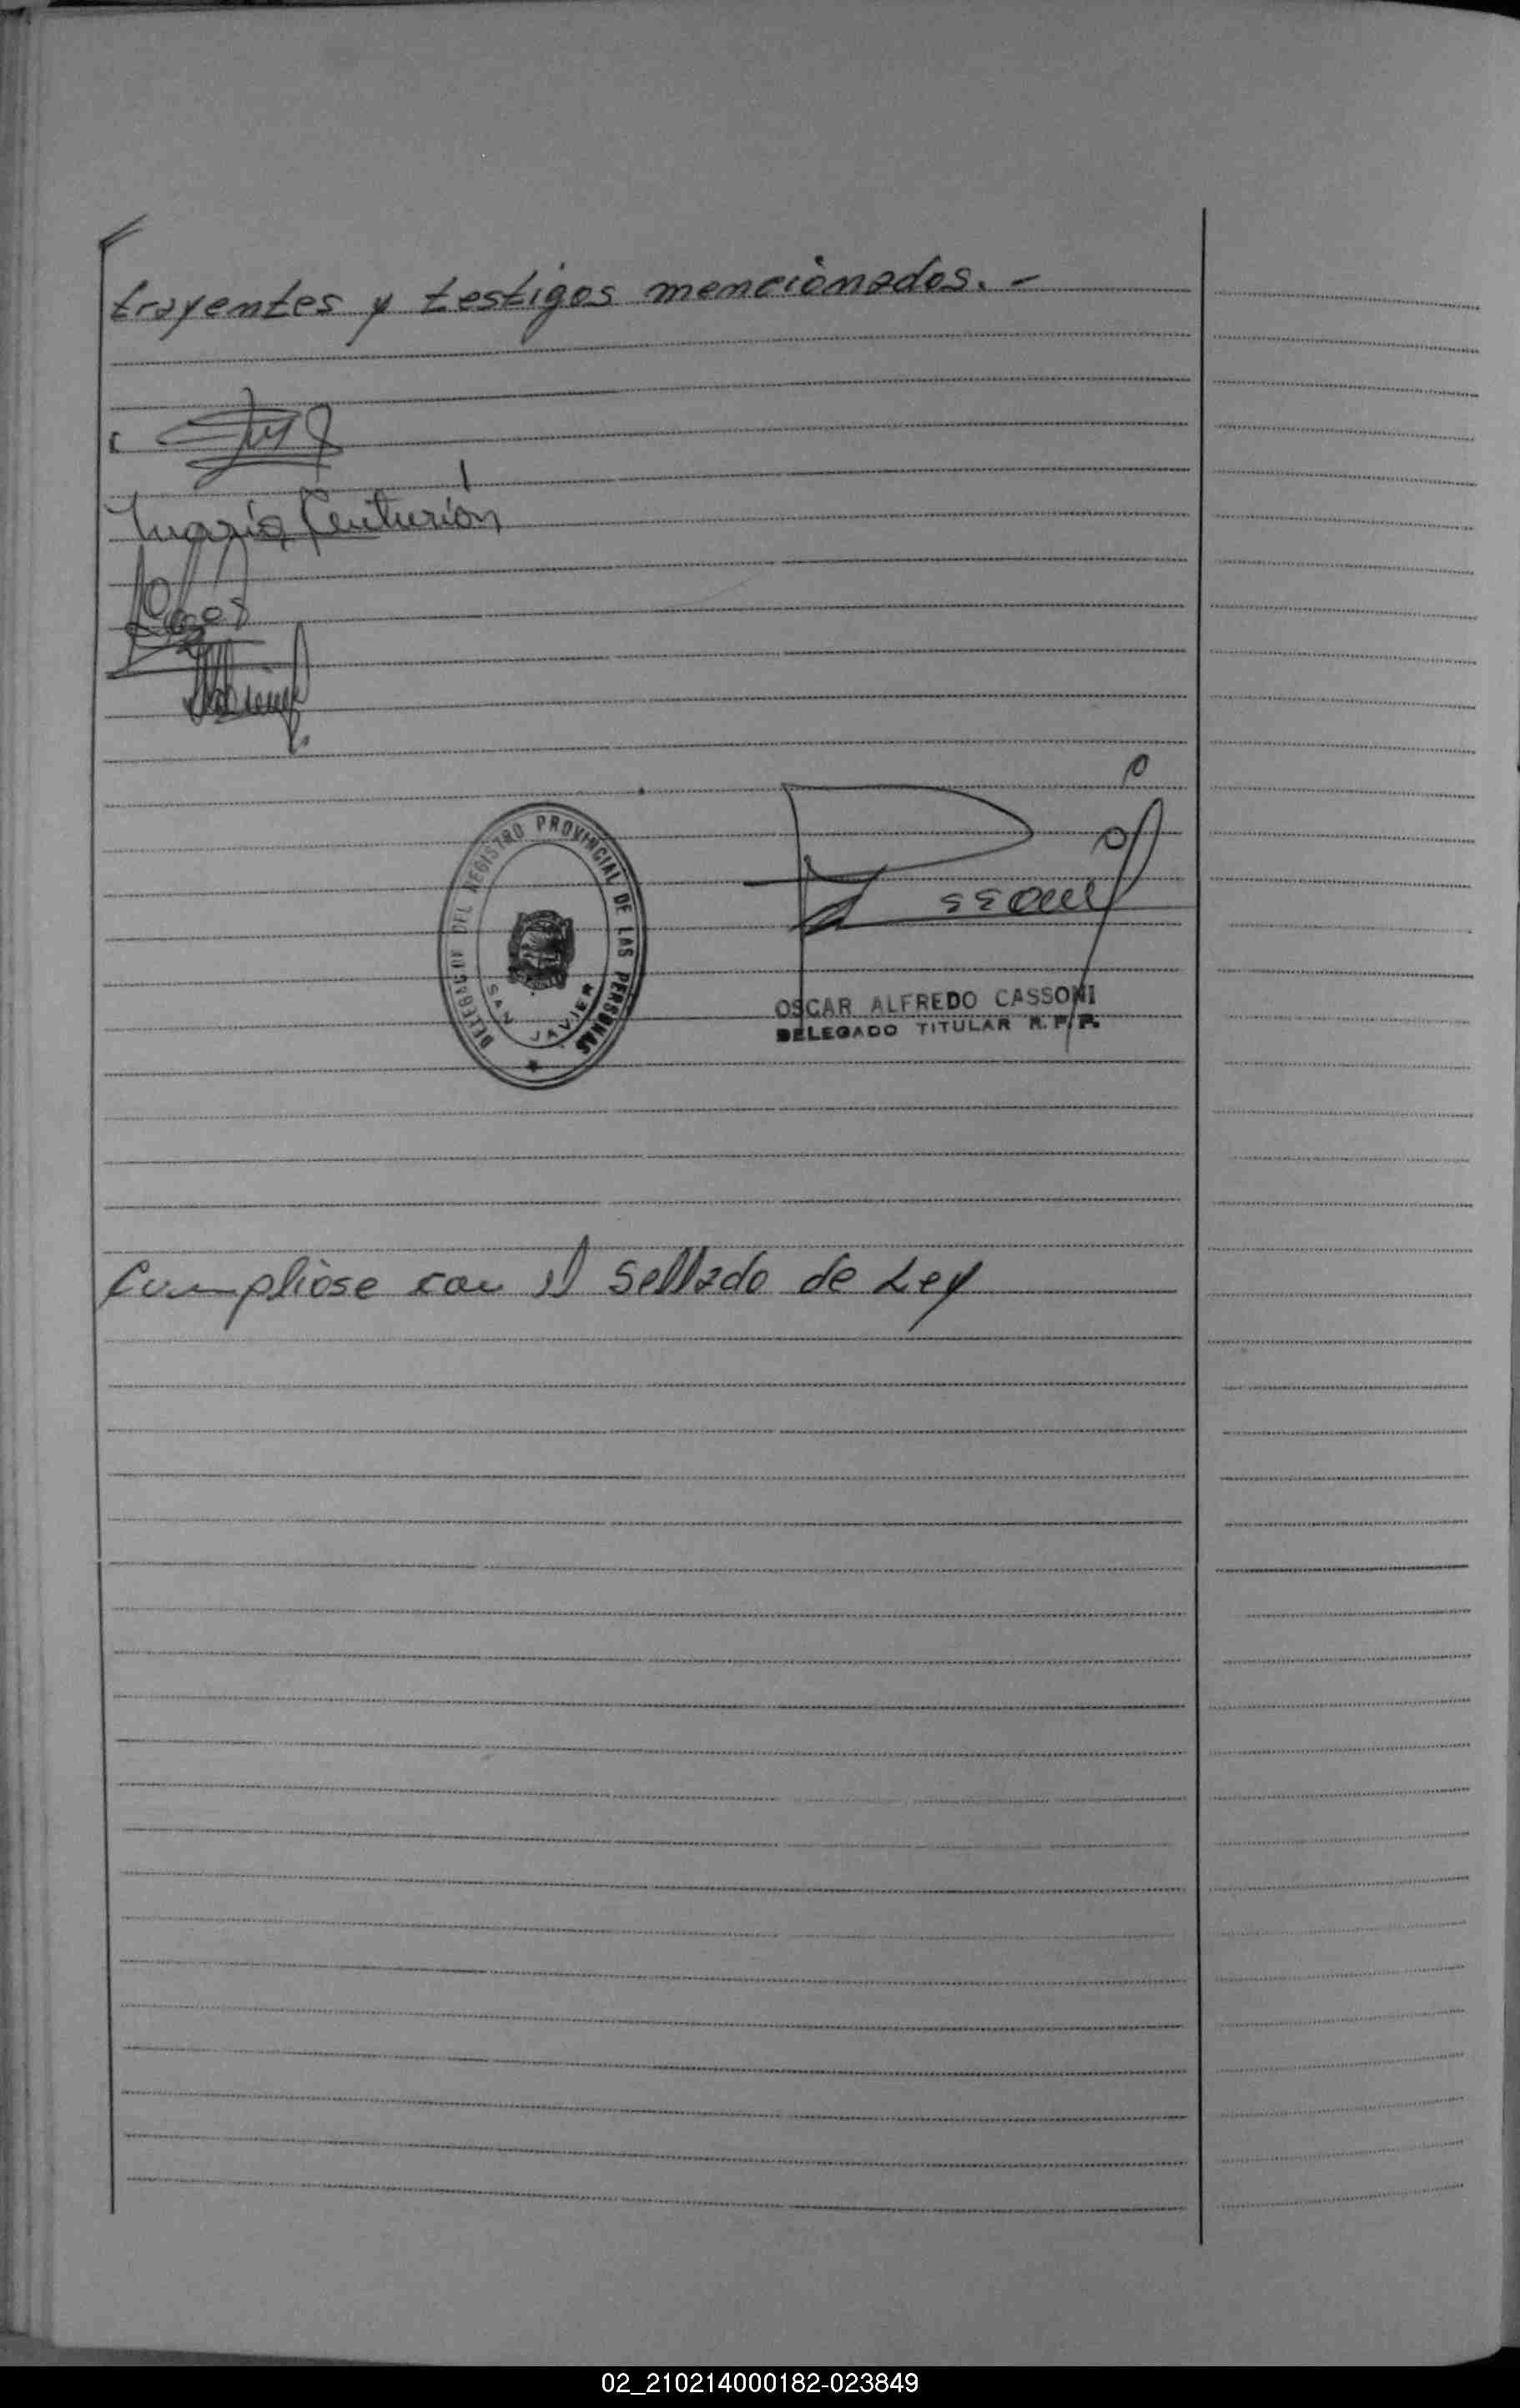 trayentes y testigos mencionados. -
Maria Centurión
DELEGACION DEL REGISTRO PROVINCIAL DE LAS PERSONAS
SAN JAVIER
OSCAR ALFREDO CASSONI
DELEGADO TITULAR R. P. P.
Cumpliose con el Sellado de Ley
02_210214000182-023849